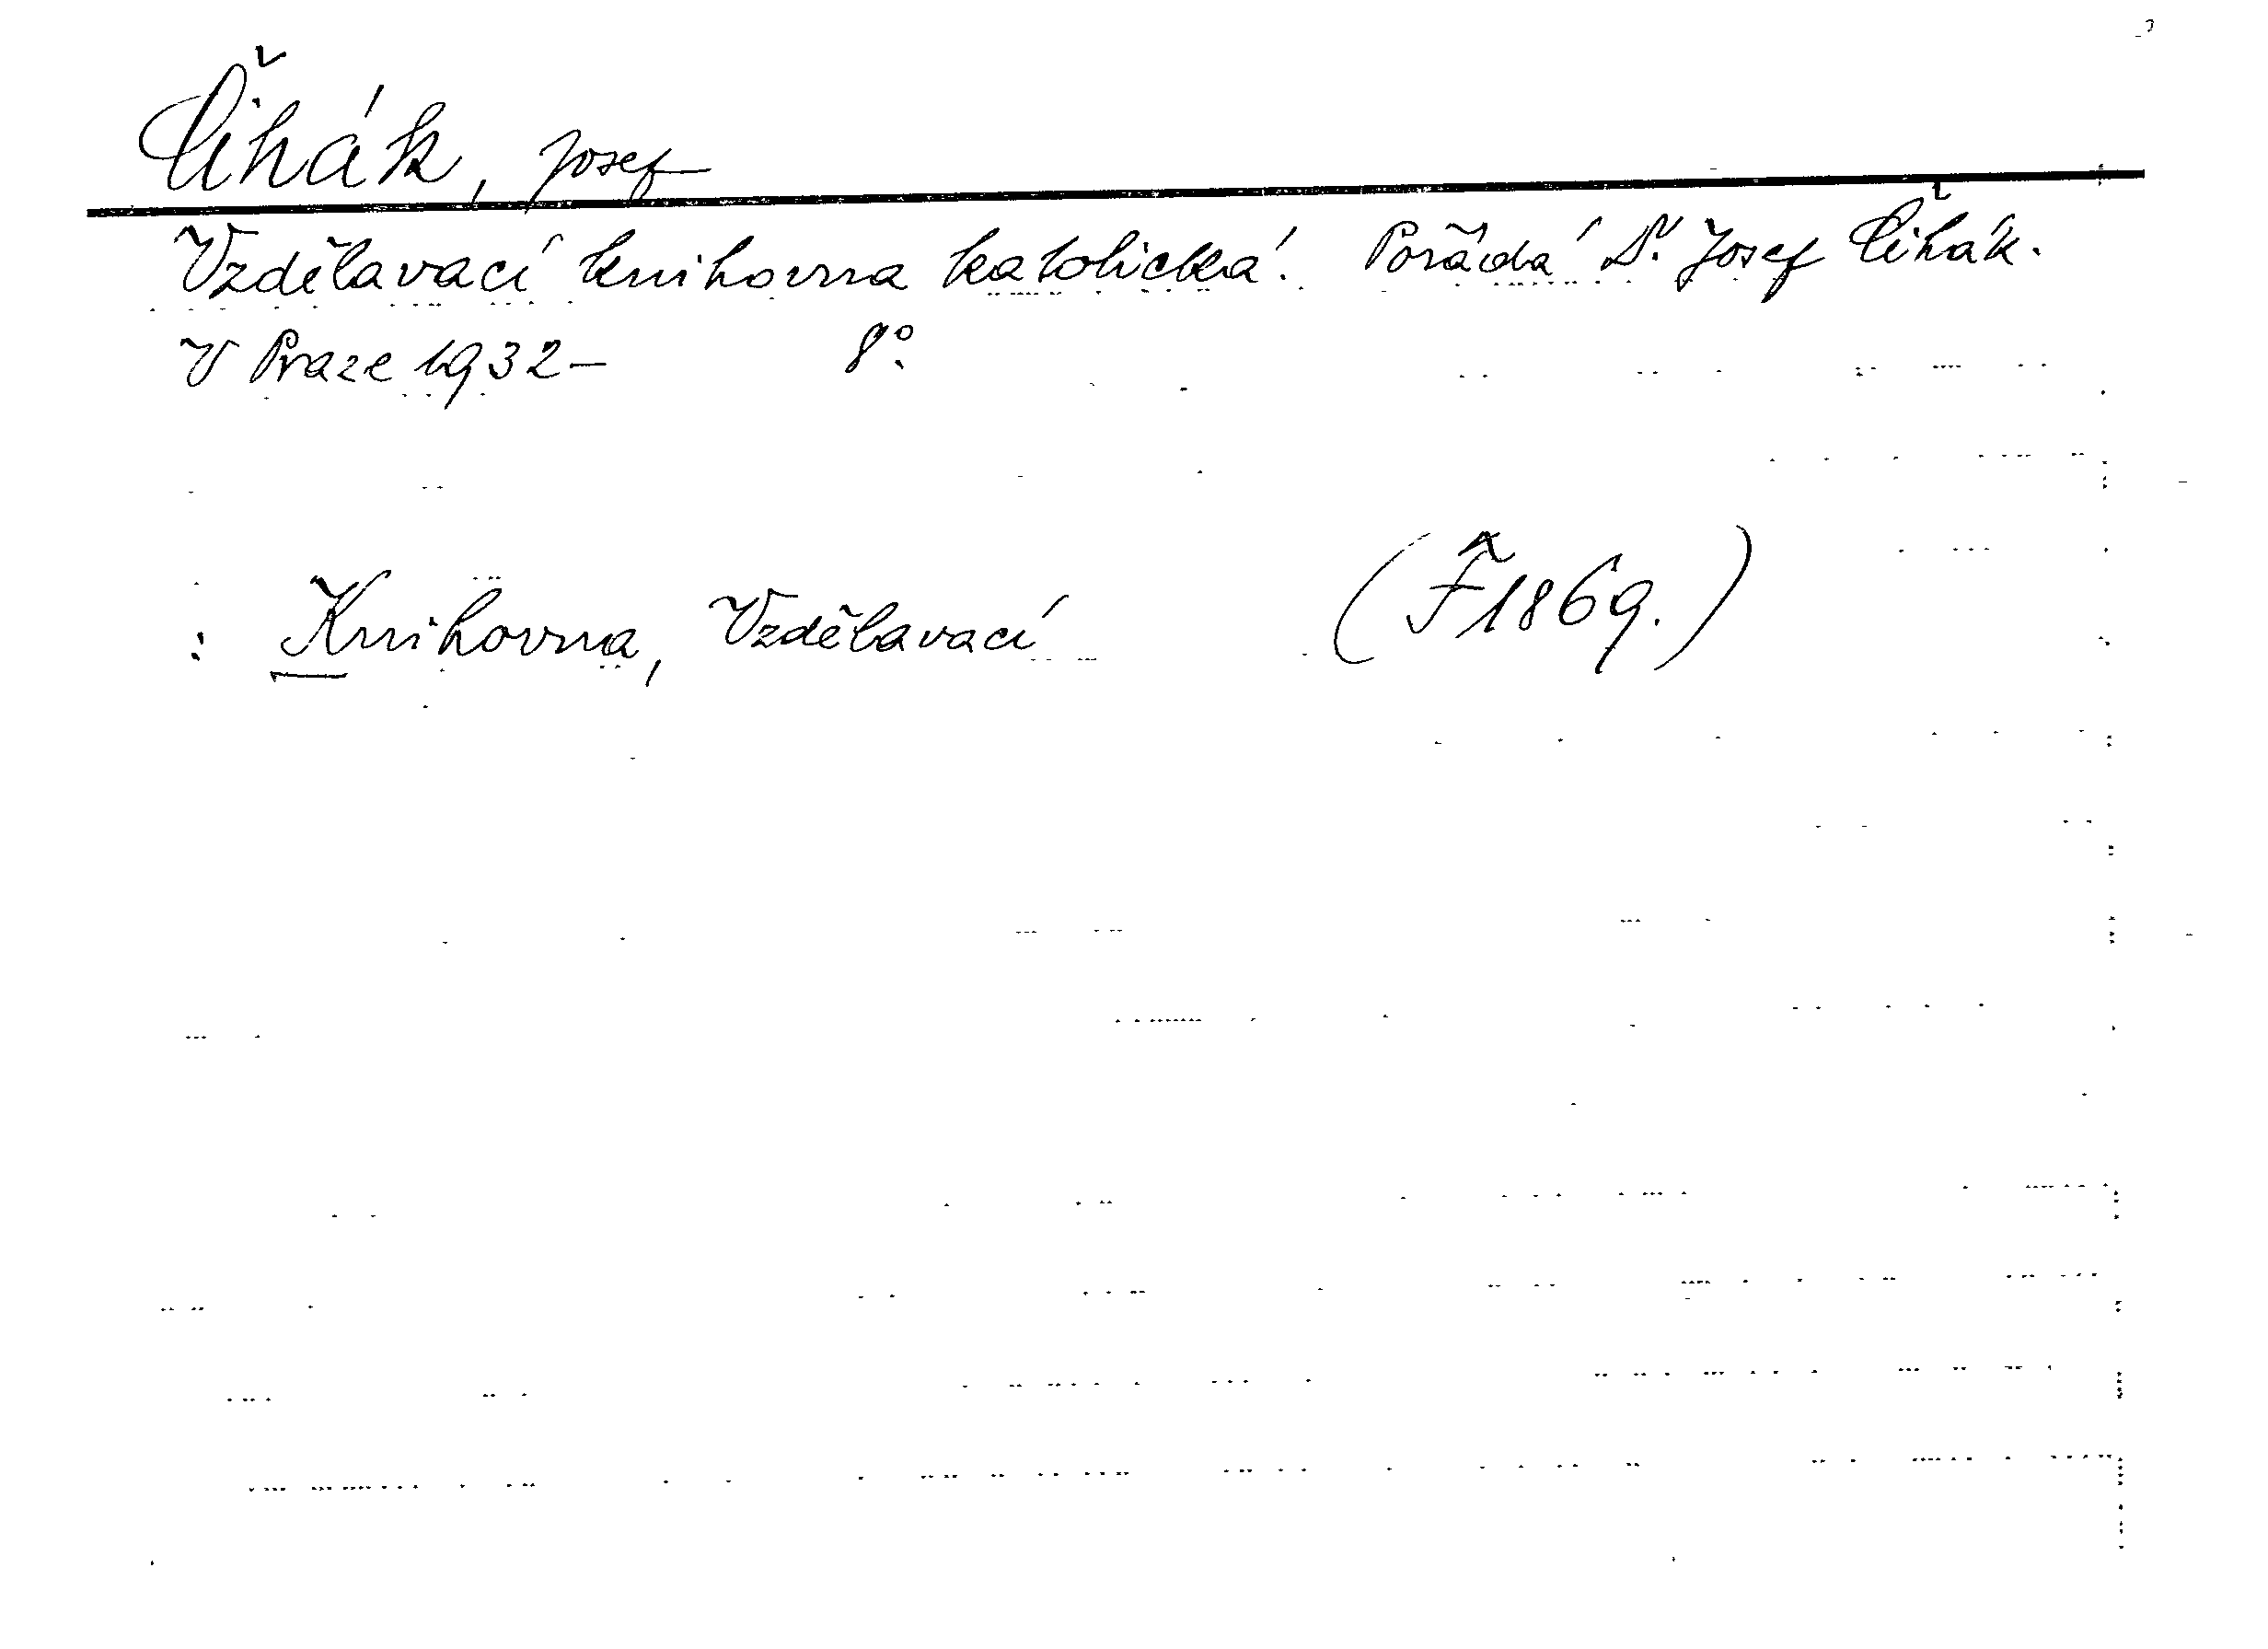 Čihák, Josef
Vzdělavací knihovna katolická. Pořádá Dr. Josef Čihák.
V Praze 1932- 8°.
: Knihovna, Vzdělavací (F 1869.)